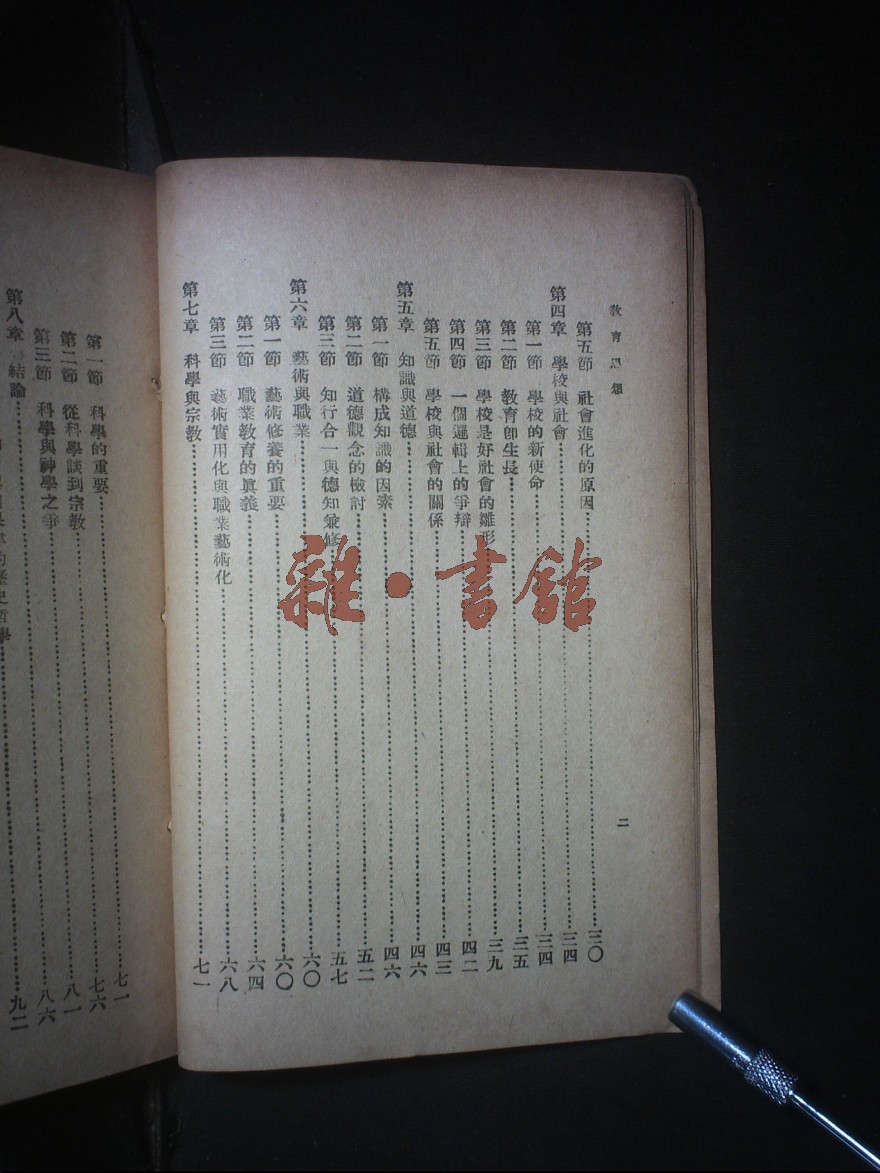 教育思想
第五節 社會進化的原因 三〇
第四章 學校與社會 三四
第一節 學校的新使命 三四
第二節 教育卽生長 三五
第三節 學校是好社會的雛形 三九
第四節 一個邏輯上的爭辯 四二
第五節 學校與社會的關係 四三
第五章 知識與道德 四六
第一節 構成知識的因素 四六
第二節 道德觀念的檢討 五二
第三節 知行合一與德知兼修 五七
第六章 藝術與職業 六〇
第一節 藝術修養的重要 六〇
第二節 職業教育的眞義 六四
第三節 藝術實用化與職業藝術化 六八
第七章 科學與宗教 七一
二
第一節 科學的重要 七一
第二節 從科學談到宗教 七六
第三節 科學與神學之爭 八一
第八章 結論 八六
的歷史哲學 九二
雜·書館